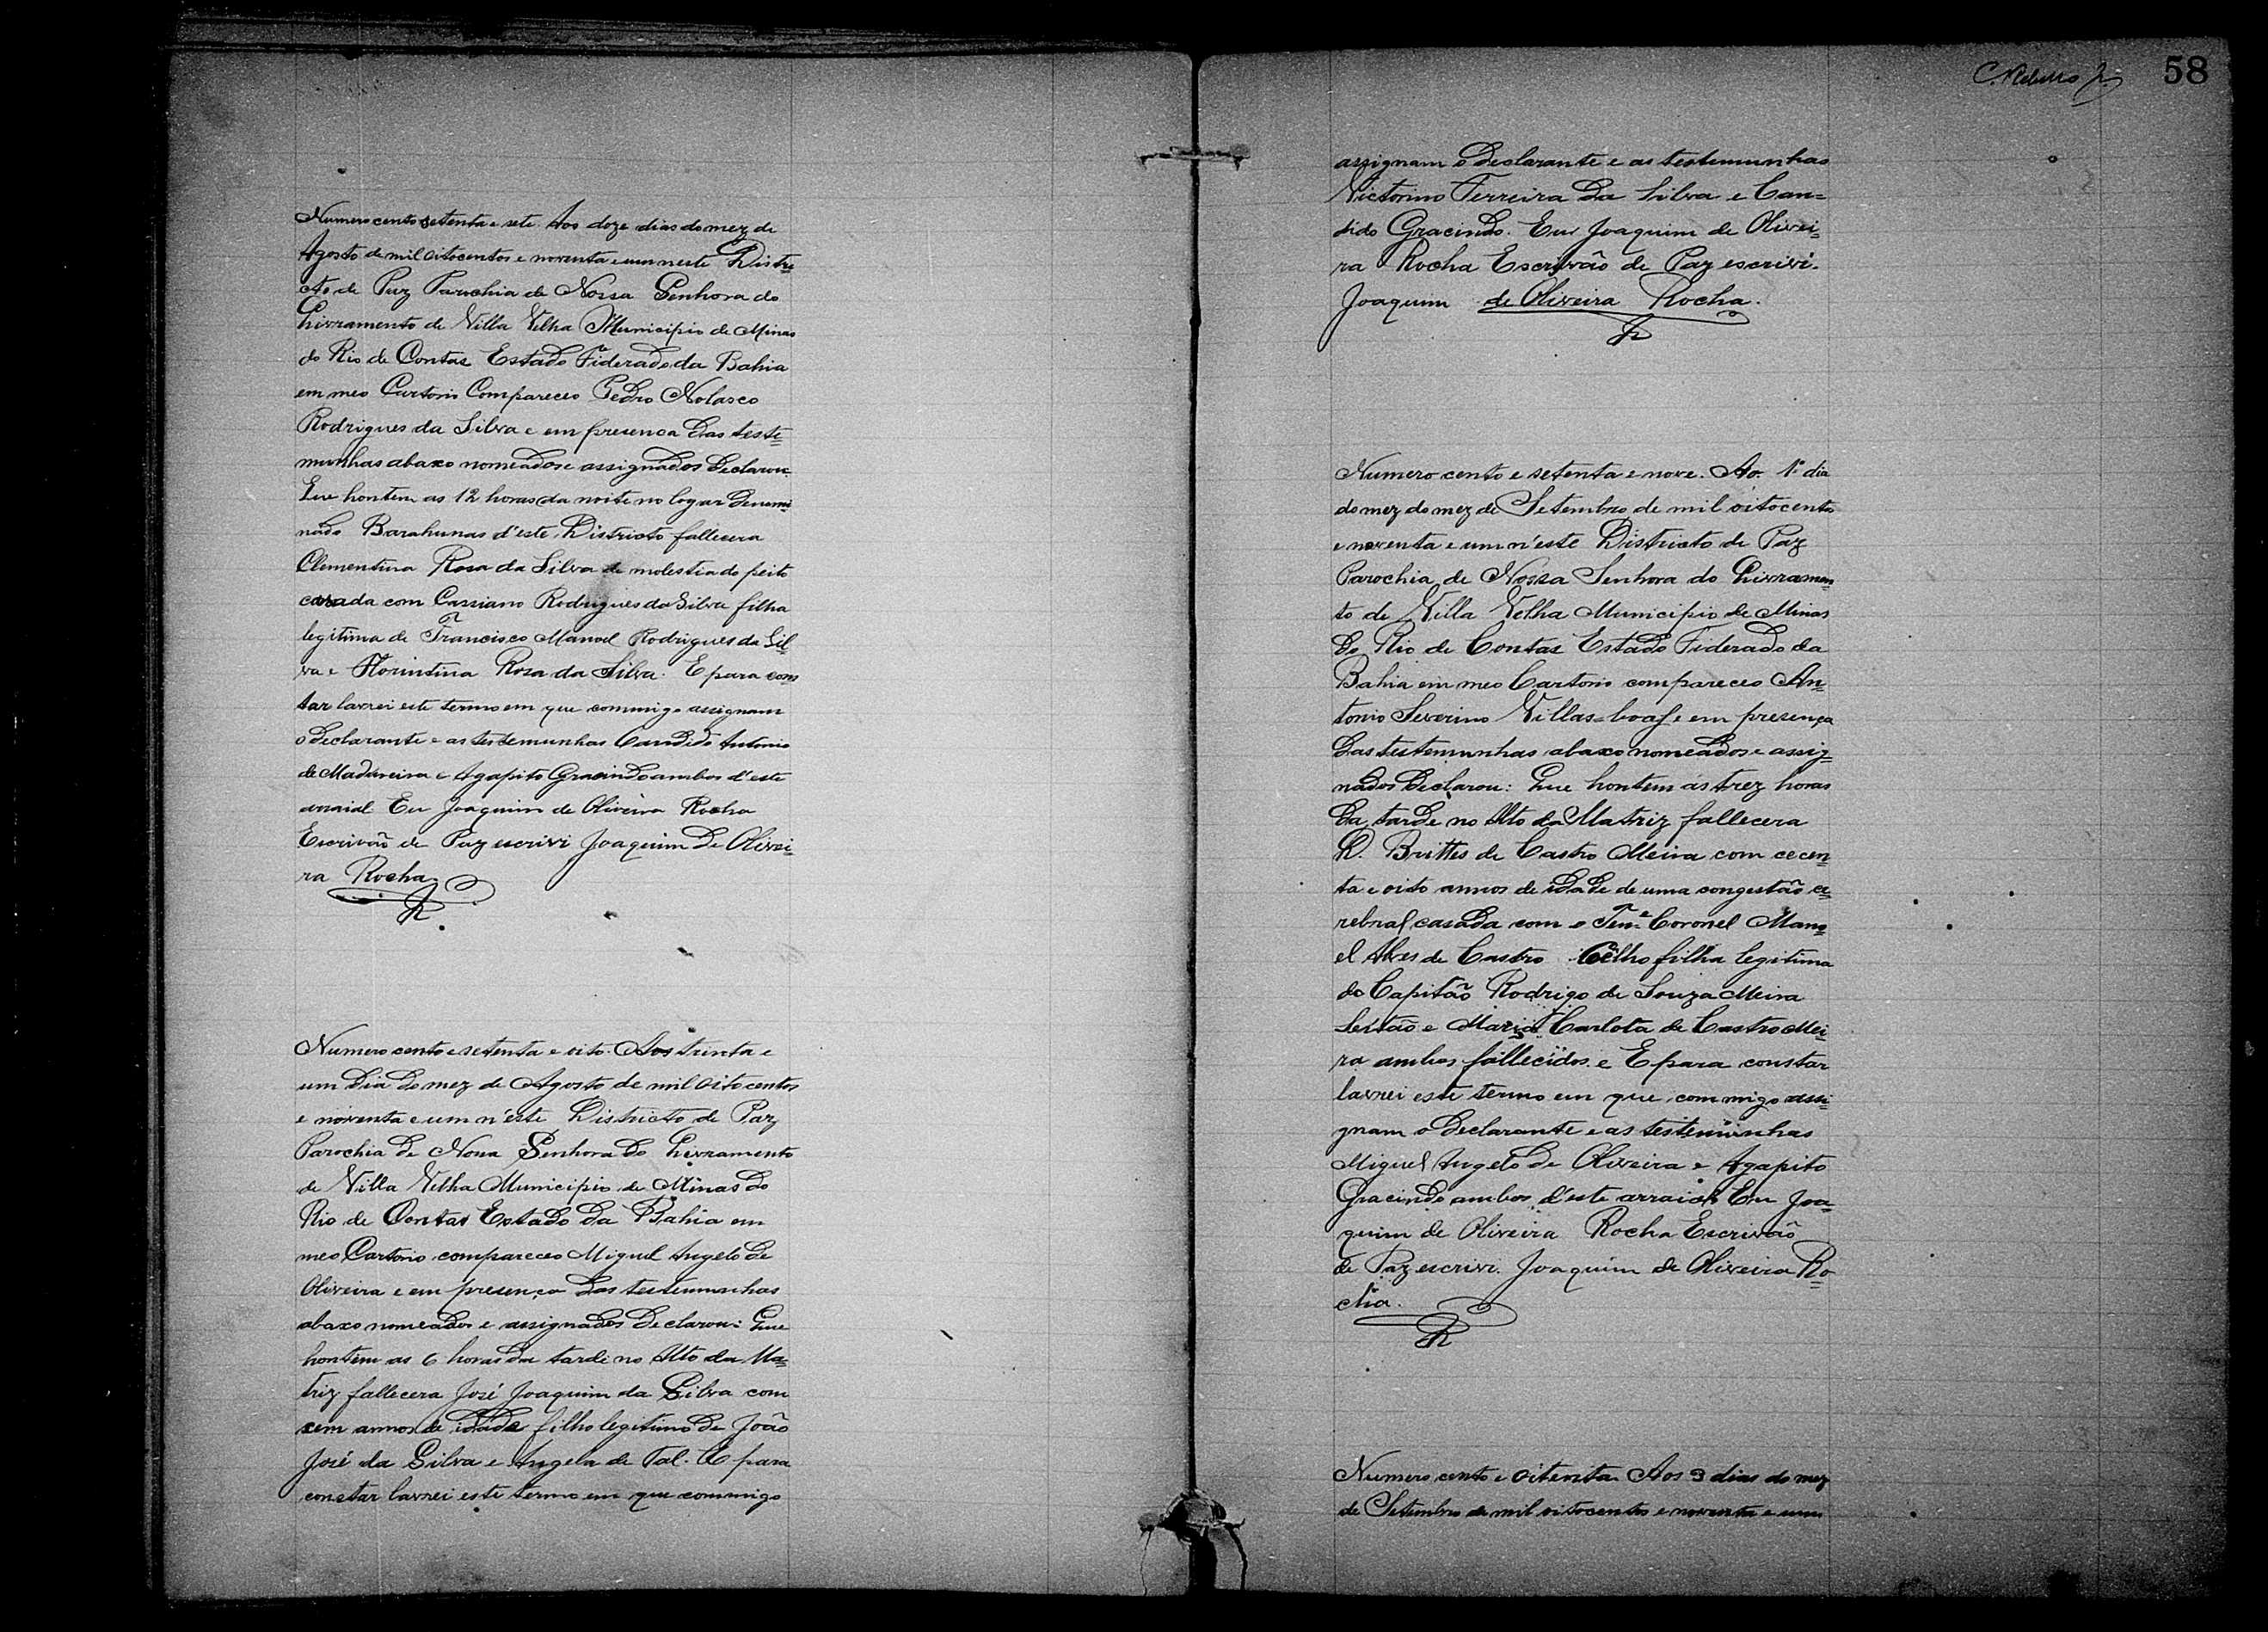 Numero cento setenta e sete. Aos doze dias do mez de
Agosto de mil oitocentos e noventa e um neste Distri=
cto de Paz Parochia de Nossa Senhora do
Livramento de Villa Velha Municipio de Minas
do Rio de Contas Estado Federado da Bahia
em meo Cartorio Compareceo Pedro Nolasco
Rodrigues da Silva e em presenca das teste=
munhas abaxo nomeados e assignados declarou.
Que hontem as 12 horas da noite no logar denomi=
nado Barahunas d'este Districto fallecera
Clementina Rosa da Silva de molestia do peito
casada com Cassiano Rodrigues da Silva filha
legitima de Francisco Manoel Rodrigues da Sil=
va e Florintina Rosa da Silva. E para cons
tar lavrei este termo em que commigo assignam
o declarante e as testemunhas Candido Antonio
de Madureira e Agapito Gracindo ambos d'este
arraial Eu Joaquim de Oliveira Rocha
Escrivão de Paz escrivi Joaquim de Olivei=
ra Rocha.
R
Numero cento e setenta e oito. Aos trinta e
um dia do mez de Agosto de mil oitocentos
e noventa e um n'este Districto de Paz
Parochia de Nossa Senhora do Livramento
de Villa Velha Municipio de Minas do
Rio de Contas Estado da Bahia em
meo Cartorio compareceo Miguel Angelo de
Oliveira e em presença das testemunhas
abaxo nomeados e assignados declarou: Que
hontem as 6 horas da tarde no Alto da Ma=
triz fallecera José Joaquim da Silva com
cem annos de idade filho legitimo de João
José da Silva e Angela de Tal. E para
constar lavrei este termo em que commigo
58
assignam o declarante e as testemunhas
Victorino Ferreira da Silva e Can=
dido Gracindo. Eu Joaquim de Olivei=
ra Rocha Escrivão de Paz escrivi.
Joaquim de Oliveira Rocha.
R
Numero cento e setenta e nove. Ao 1º dia
do mez do mez de Setembro de mil oitocentos
e noventa e um n'este Districto de Paz
Parochia de Nossa Senhora do Livramen
to de Villa Velha Municipio de Minas
do Rio de Contas Estado Federado da
Bahia em meo Cartorio compareceo An=
tonio Severino Villas=boas e em presença
das testemunhas abaxo nomeados e assig=
nados declarou: Que hontem ás trez horas
da tarde no Alto da Matriz fallecera
D. Brittes de Castro Meira com cecen=
ta e oito annos de idade de uma congestão ce=
rebral casada com o Tene Coronel Mano=
el Alves de Castro Coelho filha legitima
do Capitão Rodrigo de Souza Meira
Sertão e Maria Carlota de Castro Mei=
ra ambos fallecidos. e E para constar
lavrei este termo em que commigo assi=
gnam o declarante e as testemunhas
Miguel Angelo de Oliveira e Agapito
Gracindo ambos d'este arraial Eu Joa=
quim de Oliveira Rocha Escrivão
de Paz escrivi. Joaquim de Oliveira Ro=
cha.
R
Numero cento e oitenta Aos 3 dias do mez
de Setembro de mil oitocentos e noventa e um